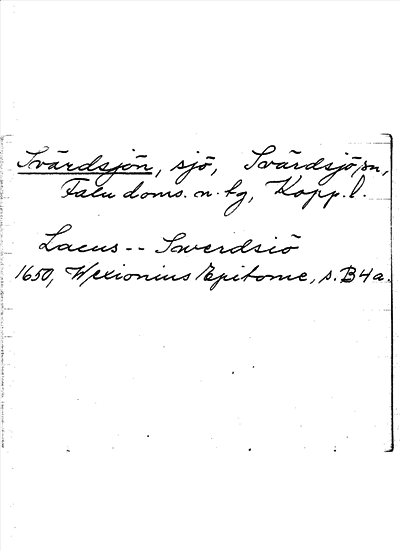 Svärdsjön, sjö, Svärdsjö sn,
Falu doms. n. tg, Kopp. l.
Lacus -- Swerdsiö
1650, Wexionius Epitome, s. B4a.